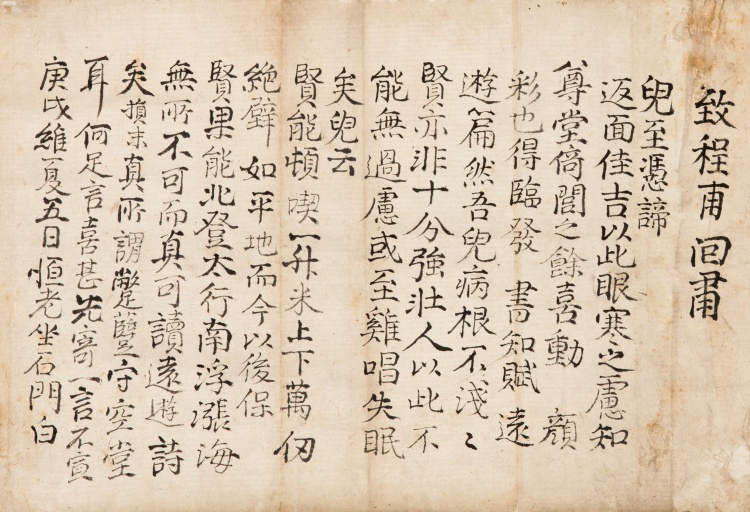 致程甫回肅
兒至憑諦
返面佳吉以此眼寒之慮知
尊堂倚閭之餘喜動 顔
彩也得臨發 書知賦遠
遊篇然吾兒病根不淺〻
賢亦非十分強壯人以此不
能無過慮或至雞唱失眠
矣兒云
賢能頓喫一升米上下萬仞
絶壁 如平地而今以後保
賢果能北登太行南浮漲海
無所不可而真可讀遠遊詩
矣損末真所謂躄躠守空堂
耳何足言喜甚先寄一言不宣
庚戌維夏五日恒老坐石門白